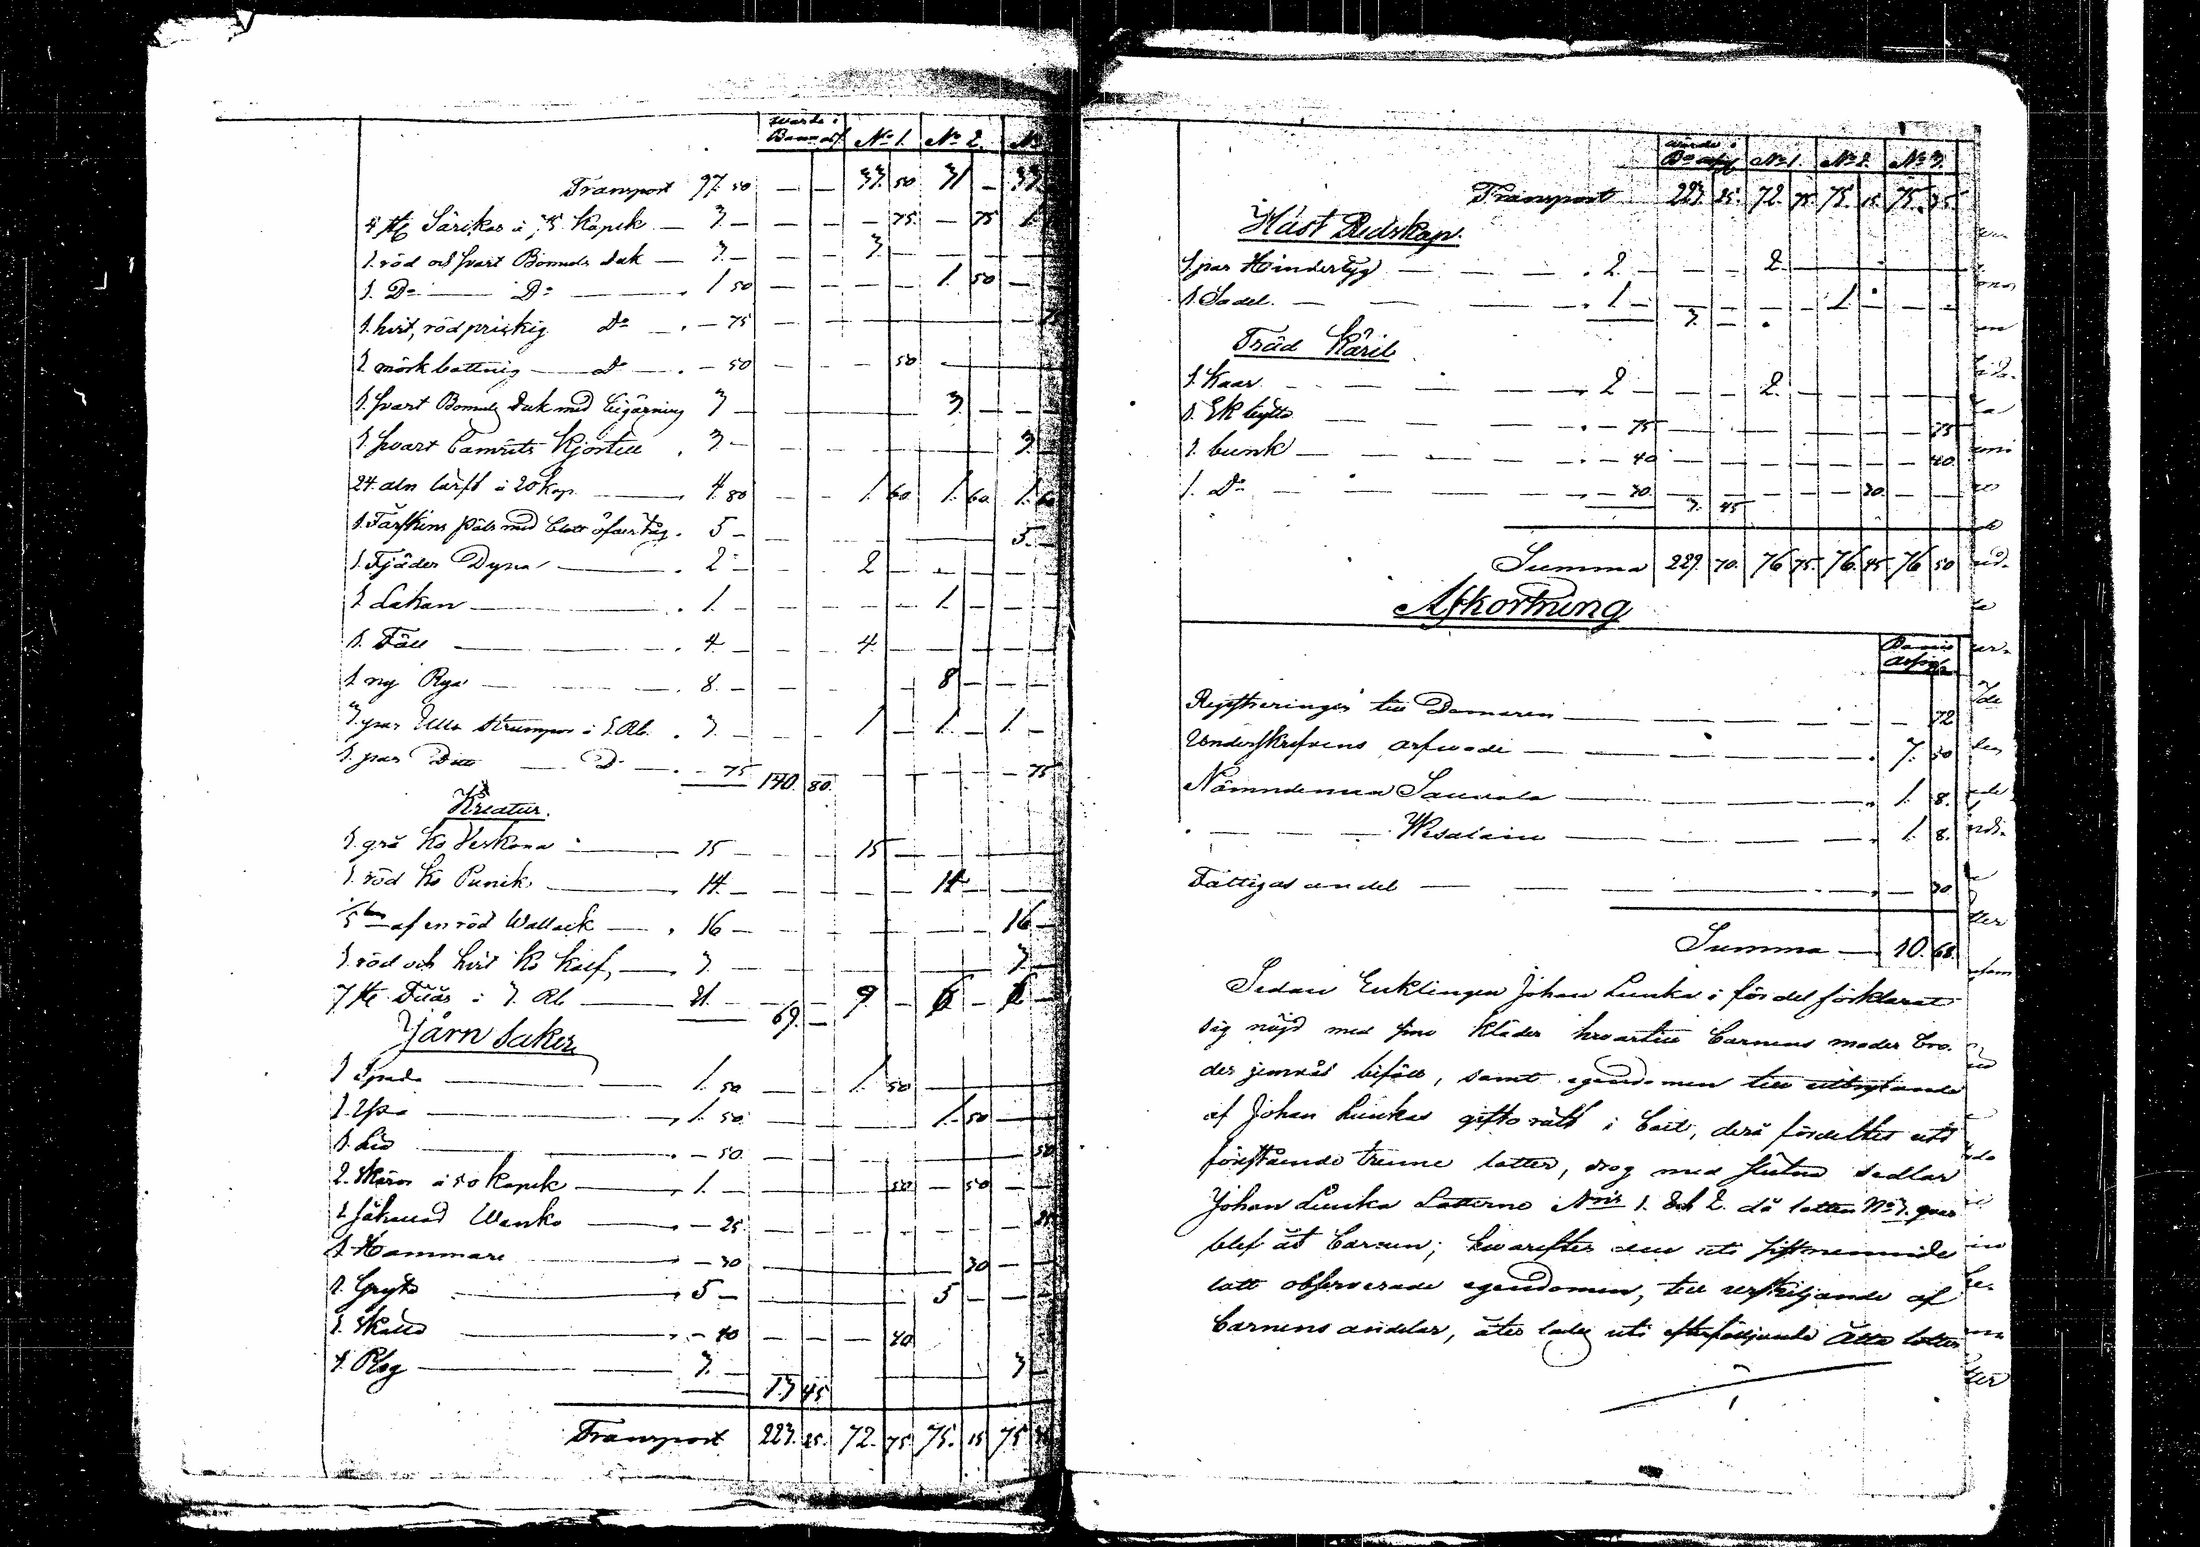 värde i Banco ass. No 1. No 2. No
Transport 97. 50 — — 33. 50 31 — 33.
4 st. Särkar à 75 Kopek — 3. — — — — 75 — 75 1.
1. röd och svart Bomuls duk — 3. — — — 3. — — — —
1. Do — Do — 1 50 — — — — 1. 50 —
1. hvit, rödprickig Do — . — 75
1 mörkbottnig — do — . — 50 — — — 50
1. svart Bomuls duk med 3 — 3. — —
1 svart Camrits Kjortell . 3 — 3.
24. aln lärft à 20 kop. — 4. 80 — — 1. 60 1. 60 1. 60
1. Fårskins päls med öfvertyg . 5 — 5. —
1. Fjäder Dyna — . 2 — 2 — — —
1 Lakan — . 1. — — — — — 1. — — —
1. Fäll — . 4. — — — 4. — — — —
1 ny Rya — . 8. — — — — 8 — — —
3. par Ulla strumpor à 1. Rb. . 3. — — — 1 — 1. — 1. —
1. par Ditto — D — . — 75 130. 80. — — — — — 75
Kreatur.
1. grå Ko — 15 — — — 15 — — — —
1. röd Ko Punik. — 14. — — — — — 14 — — —
af en röd Wallack — . 16 — — — — — — — 16 —
1. röd och hvit Ko Kalf, — 3. — — — — — — — 3. —
7 st. Fåår à 3. Rb — 21. — — 69. — 9. — 6 — 6 —
Järn Saker
1 Spada — 1. 50 — — 1. 50
1. Yxa — 1. 50. — — — — 1. 50
1. Lia — . — 50. 50
2. Skäror à 50 Kopek — . 1. — — — — 50 — 50 — —
1 Wanko — . — 25. — — — — — — — 25
1. Hammare — — 30 30 — —
1. Gryta — . 5 — 5 — — —
1. Skålla — . — 40 — — — 40
1. Plog — 3. — 3 —
13 45
Transport 223. 25. 72. 75. 75. 15 75
värde i Bco assig No 1. No 2. No 3.
Transport 223. 25. 72. 75. 75. 15. 75. 35.
Häst Redskap.
1 par Hindertyg — — — . 2. — — — 2.
1. Sadel. — — — — . 1. — — — — — 1. — — —
3. — .
Träd Käril
1. Kaar. — — — — 2 — — — 2. — — — — —
1. Ek bytta — — — . — 75 — — — — — — — 75
1. bunk — — — — . — 40 — — — — — — — 40.
1. Do — — — — . — 30. — — — — — 30. — —
3. 45
Summa 229. 70. 76 75. 76. 45. 76 50
Afkortning
Banco Assig.
Registrerings till Domaren — — — — 72
Underskrefvens arfwode — — — . 7. 50
Nämndeman — . 1. 8.
— — — — . 1. 8.
Fattigas andel — — — . — 30.
Summa — 10. 68.
Sedan Enklingen Johan Lunka i fördel förklarat
sig nöjd med sine kläder hvartill Barnens moder bro-
der jemväl biföll, samt egendomen till utbrytande
af Johan Lunkas giftorätt i boet, derå fördeltes uti
förestående trenne lotter, drog med slutna sedlar
Johan Lunka Lotterne Nris 1. och 2. då lotten No 3. qvar
blef åt Barnen; hvarefter den uti sistnemnde
lott observerade egendomen, till urskiljande af
Barnens andelar, åter lades uti efterföljande Åtta lotter